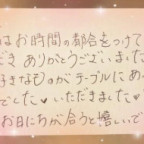 はお時間の都合をつけて
だき ありがとうございまいた
好きなものがテーブルにあ
でした♥ いただきました♥
お日にちが合うと嬉しいで